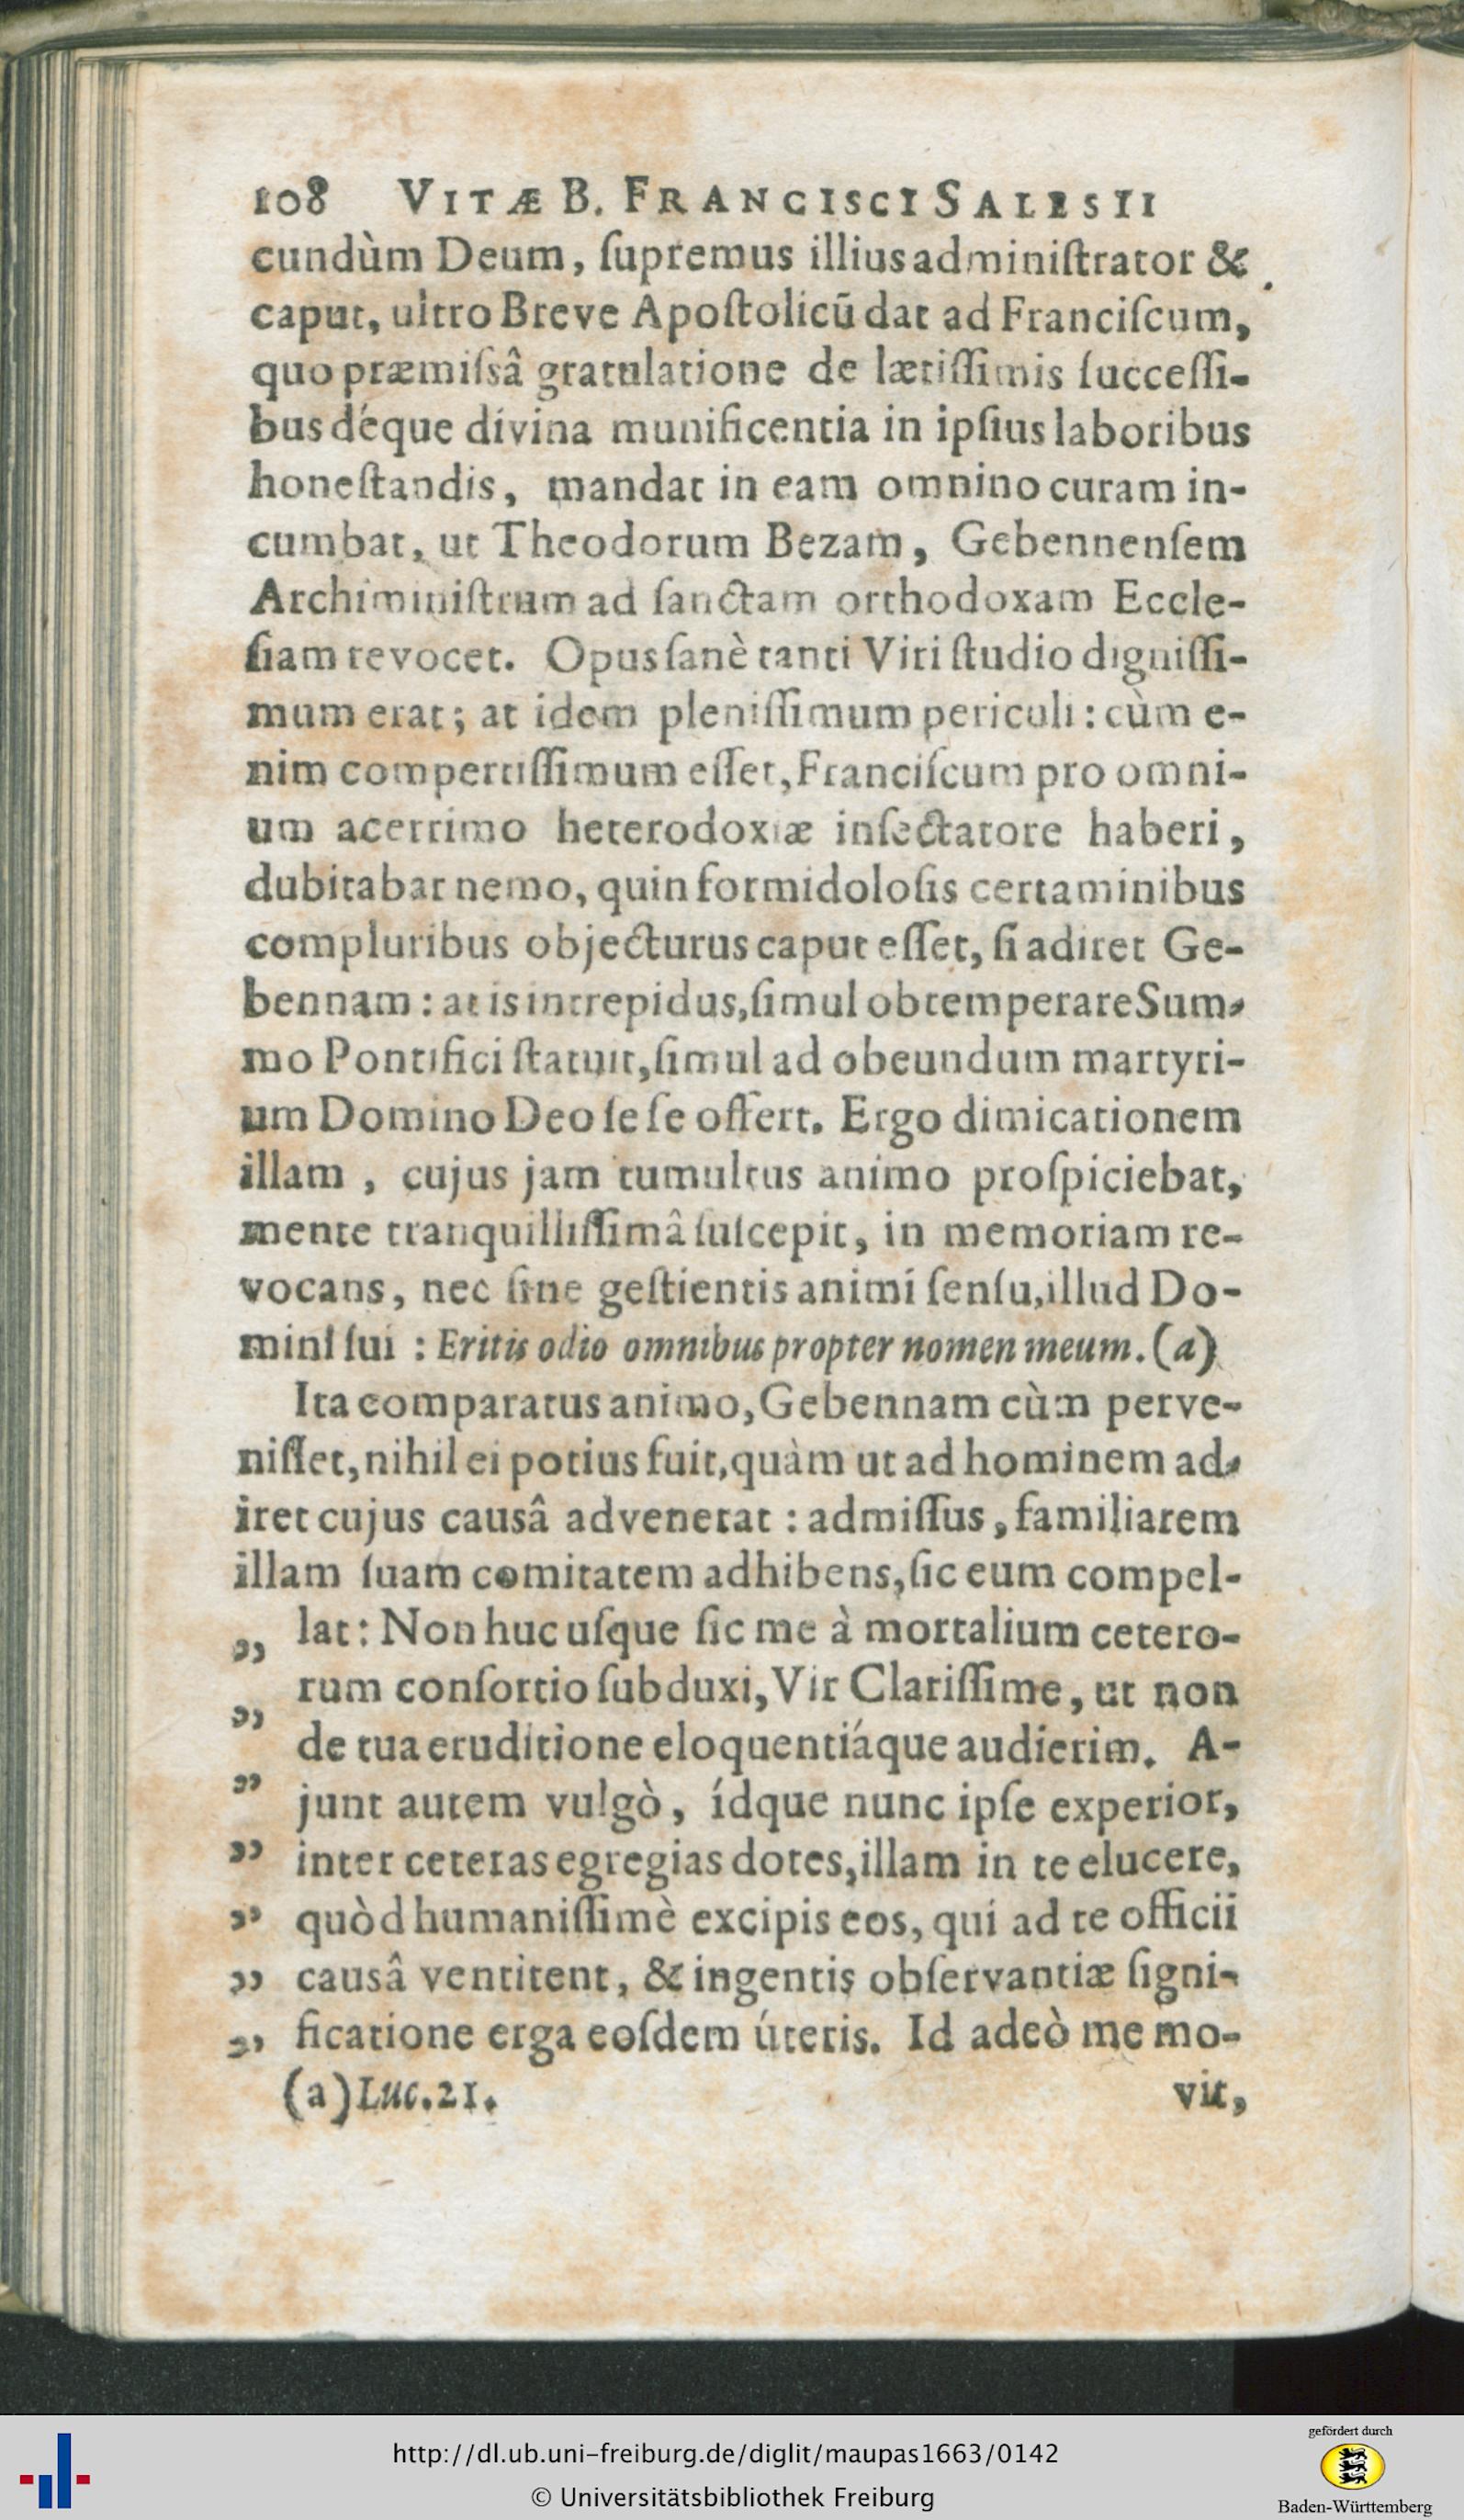 108 VITÆ B. FRANCISCI SALESII
cundùm Deum, ſupremus illius adminiſtrator &
caput, ultro Breve Apoſtolicũ dat ad Franciſcum,
quo præmiſsâ gratulatione de lætiſſimis ſucceſſi-
bus déque divina munificentia in ipſius laboribus
honeſtandis, mandat in eam omnino curam in-
cumbat, ut Theodorum Bezam, Gebennenſem
Archiminiſtrum ad ſanctam orthodoxam Eccle-
ſiam revocet. Opus ſanè tanti Viri ſtudio digniſſi-
mum erat; at idem pleniſſimum periculi: cùm e-
nim compertiſſimum eſſet, Franciſcum pro omni-
um acerrimo heterodoxiæ inſectatore haberi,
dubitabat nemo, quin formidoloſis certaminibus
compluribus objecturus caput eſſet, ſi adiret Ge-
bennam: at is intrepidus, ſimul obtemperare Sum-
mo Pontifici ſtatuit, ſimul ad obeundum martyri-
um Domino Deo ſe ſe offert. Ergo dimicationem
illam, cujus jam tumultus animo proſpiciebat,
mente tranquilliſſimâ ſuſcepit, in memoriam re-
vocans, nec ſine geſtientis animi ſenſu, illud Do-
mini ſui: Eritis odio omnibus propter nomen meum. (a)
Ita comparatus animo, Gebennam cùm perve-
niſſet, nihil ei potius fuit, quàm ut ad hominem ad-
iret cujus causâ advenerat: admiſſus, familiarem
illam ſuam comitatem adhibens, ſic eum compel-
„ lat: Non huc uſque ſic me à mortalium cetero-
„ rum conſortio ſubduxi, Vir Clariſſime, ut non
„ de tua eruditione eloquentiáque audierim. A-
„ junt autem vulgò, ídque nunc ipſe experior,
„ inter ceteras egregias dotes, illam in te elucere,
„ quòd humaniſſimè excipis eos, qui ad te officii
„ causâ ventitent, & ingentis obſervantiæ ſigni-
„ ficatione erga eoſdem úteris. Id adeò me mo-
(a) Luc. 21. vit,
http://dl.ub.uni-freiburg.de/diglit/maupas1663/0142
© Universitätsbibliothek Freiburg
gefördert durch
Baden-Württemberg